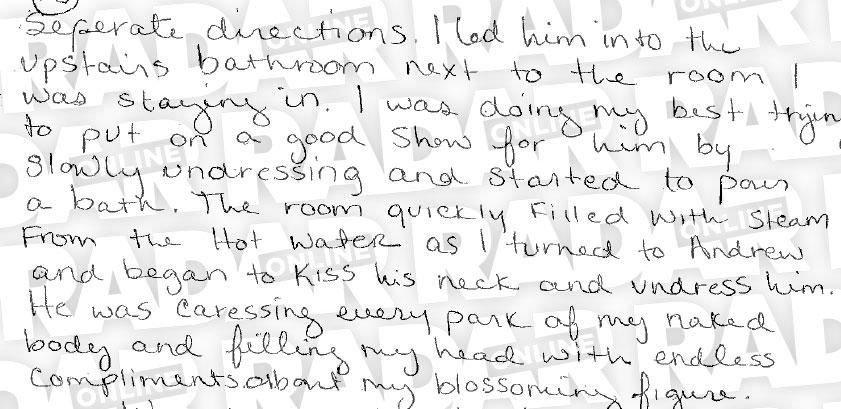 Seperate directions. I led him into the
upstairs bathroom next to the room I
was staying in. I was doing my best tryin
to put on a good show for him by
slowly undressing and started to pour
a bath. The room quickly filled with steam
From the Hot water as I turned to Andrew
and began to Kiss his neck and undress him.
He was caressing every part of my naked
body and filling my head with endless
Compliments about my blossoming figure.
RADAR ONLINE